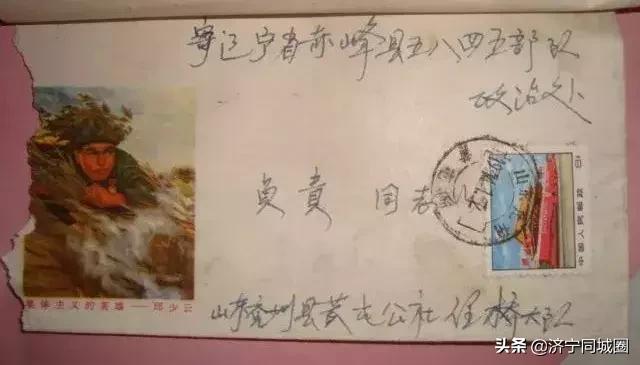 寄辽宁省赤峰县五八四五部队
政治处
负责 同志
中国人民邮政
集体主义的英雄——邱少云
山东兖州县黄屯公社任桥大队
头条 @济宁同城圈